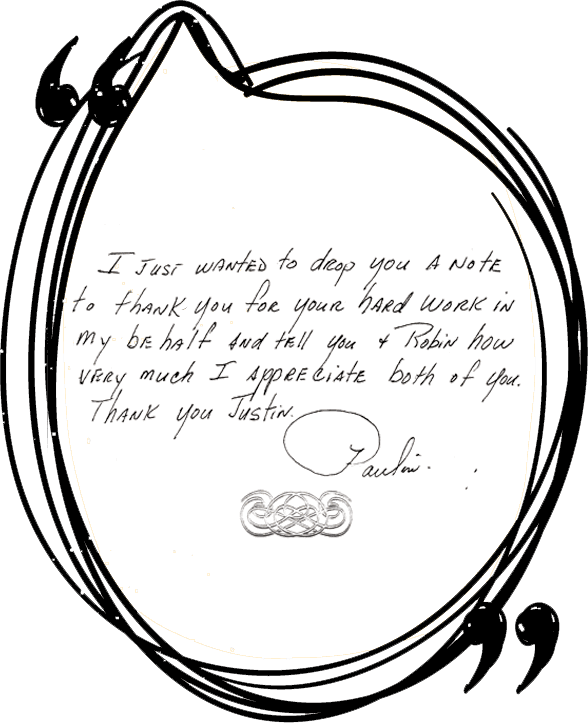 I JUST WANTED to drop you A NOTE
to thANK you FOR YOUR hARd WORK iN
my bEhalf and tell you & Robin how
VERY much I APPRECIATE both of you.
ThANK you JUSTIN.